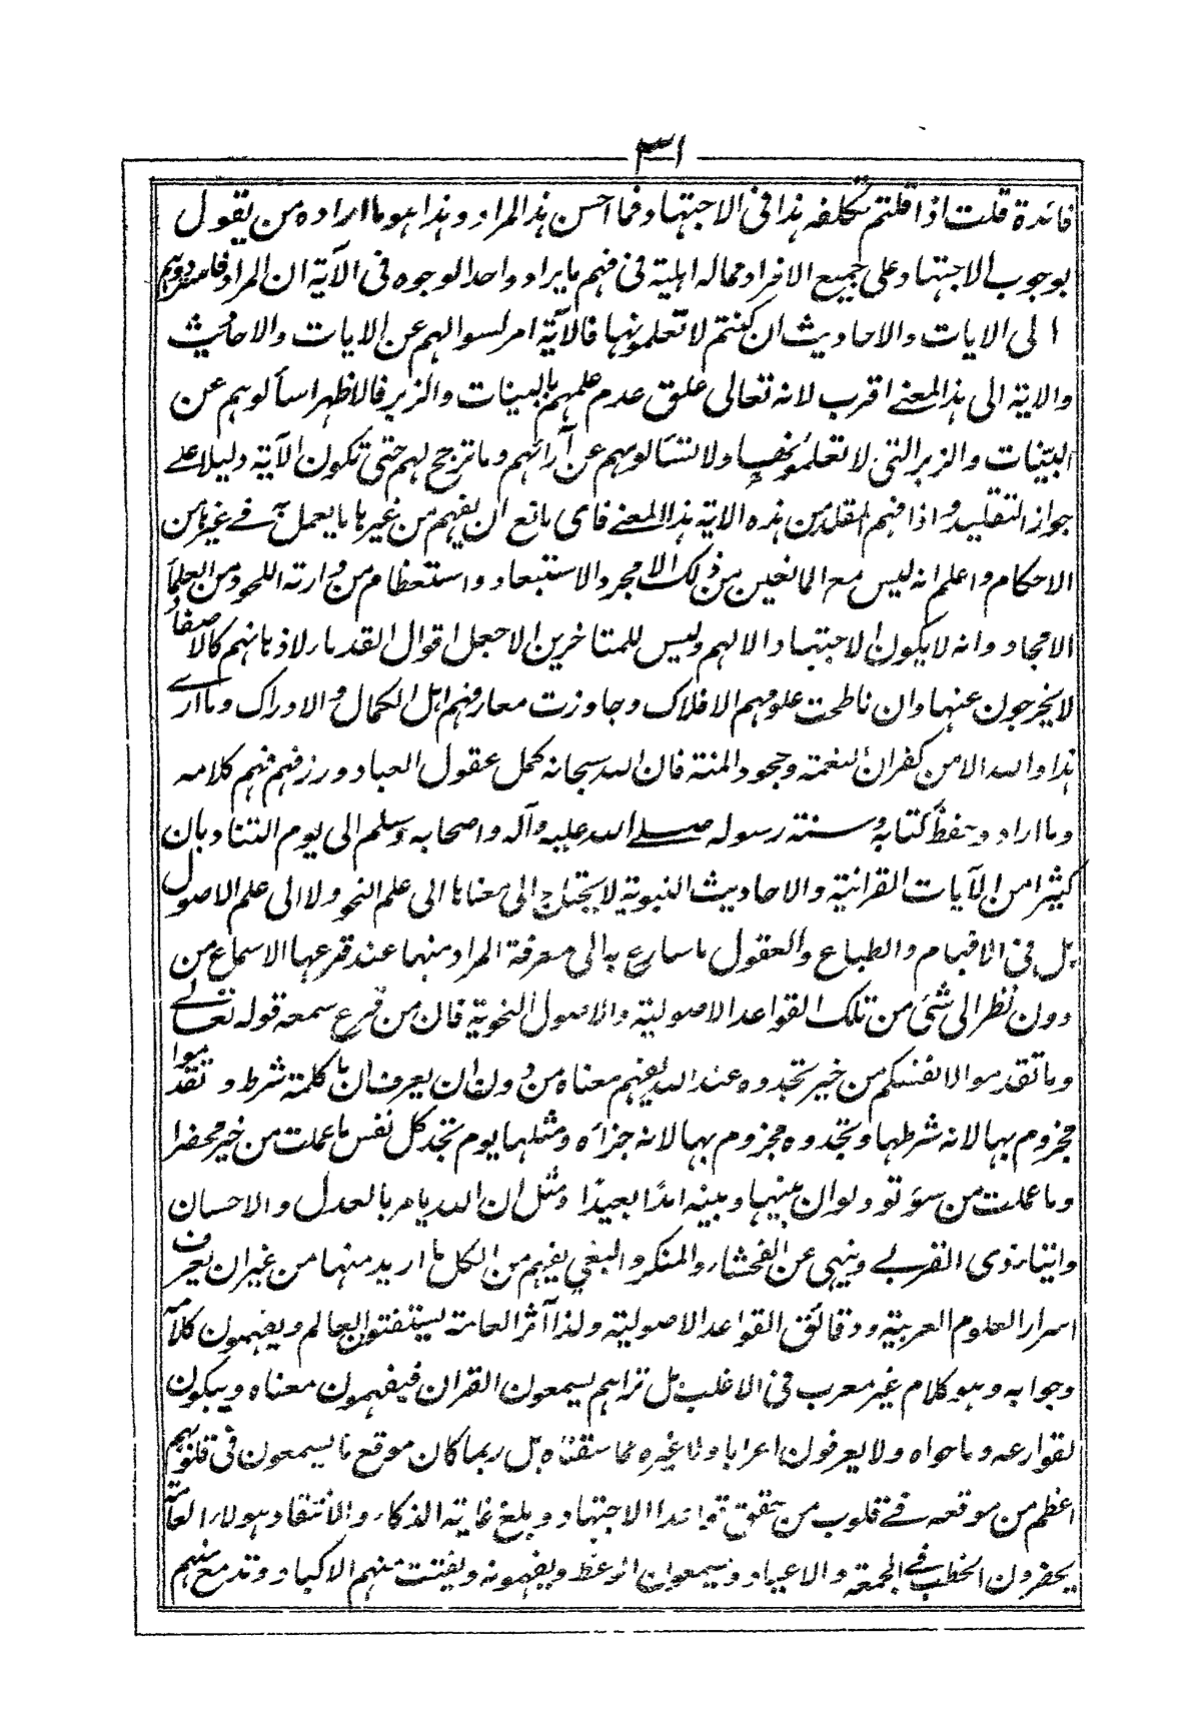 ٣١
فائدة قلت اذا قلتم تكلفه هذا فى الاجتهاد فما احسن هذا المراد وهذا هو ما اراده من يقول
بوجوب الاجتهاد على جميع الافراد مما له اهلية فى فهم ما يراد واحد الوجوه فى الآية ان المراد فاسر دوهم
الى الايات والاحاديث ان كنتم لا تعلمونها فالآية امر لسوالهم عن الايات والاحاديث
والاية الى هذا المعنے اقرب لانه تعالى علق عدم علمهم بالبينات والزبر فالاظهر اسألوهم عن
البينات والزبر التى لا تعلمونها ولا تسألوهم عن آرائهم وما ترجح لهم حتى تكون الآية دليلا علے
جواز التقليد واذا فهم المقلد من هذه الاية هذا المعنے فاى مانع ان يفهم من غيرها ما يعمل به فے غيرها من
الاحكام واعلم انه ليس مع المانعين من ذلك الا مجرد الاستبعاد واستعظام من وارته اللحود من العلماء
الامجاد وانه لا يكون الاجتهاد الا لهم وليس للمتاخرين الا جعل اقوال القدماء لاذهانهم كالاصفاد
لا يخرجون عنها وان ناطحت علومهم الافلاك وجاوزت معارفهم اهل الكمال والادراك وما ارے
هذا والله الا من كفران النعمة وجحود المنة فان الله سبحانه كمل عقول العباد ورزقهم فهم كلامه
وما اراد وحفظ كتابه وسنة رسوله صلے الله عليه وآله واصحابه وسلم الى يوم التناد بان
كثيرا من الآيات القرانية والاحاديث النبوية لا يحتاج الى معناها الى علم النحو ولا الى علم الاصول
بل فى الافهام والطباع والعقول ما سارع به الى معرفة المراد منهما عند قرعها الاسماع من
دون نظر الى شئ من تلك القواعد الاصولية والاصول النحوية فان من قرع سمعه قوله تعالے
وما تقدموا لانفسكم من خير تجدوه عند الله يفهم معناه من دون ان يعرف ان ما كلمة شرط و تقدموا
مجزوم بها لانه شرطها وتجدوه مجزوم بها لانه جزاؤه ومثلها يوم تجد كل نفس ما عملت من خير محضرا
وما عملت من سوء تود لو ان بينها وبينه امدًا بعيدًا ومثل ان الله يامر بالعدل والاحسان
وايتاء ذى القربے وينهى عن الفحشاء والمنكر والبغي يفهم من الكل ما اريد منها من غير ان يعرف
اسرار العلوم العربية ودقائق القواعد الاصولية ولذا آثر العامة ليستفتون العالم ويفهمون كلامه
وجوابه وهو كلام غير معرب فى الاغلب بل تراهم يسمعون القران فيفهمون معناه ويبكون
لقوارعه وما حواه ولا يعرفون اعرابا ولا غيره مما سقناه بل ربما كان موقع ما يسمعون فى قلوبهم
اعظم من موقعه فے قلوب من حقق قواعد الاجتهاد وبلغ غاية الذكاء والانتقاد هولاء العامة
يحضرون الخطب فے الجمعة والاعياد ويسمعون الوعظ ويفهمونه ويفتت منهم الاكباد وتدمع منهم